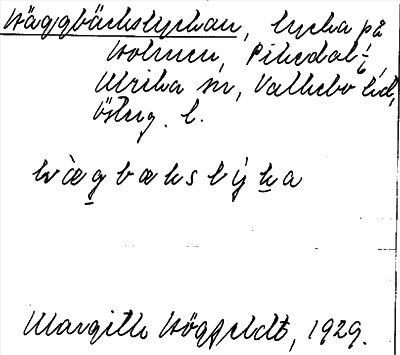 Häggbäckslyckan, lycka på
Holmen, Pikedal ½,
Ulrika sn, Vallebo hd,
Österg. l.
hæ̀gbækslýka
Margith Högfeldt, 1929.